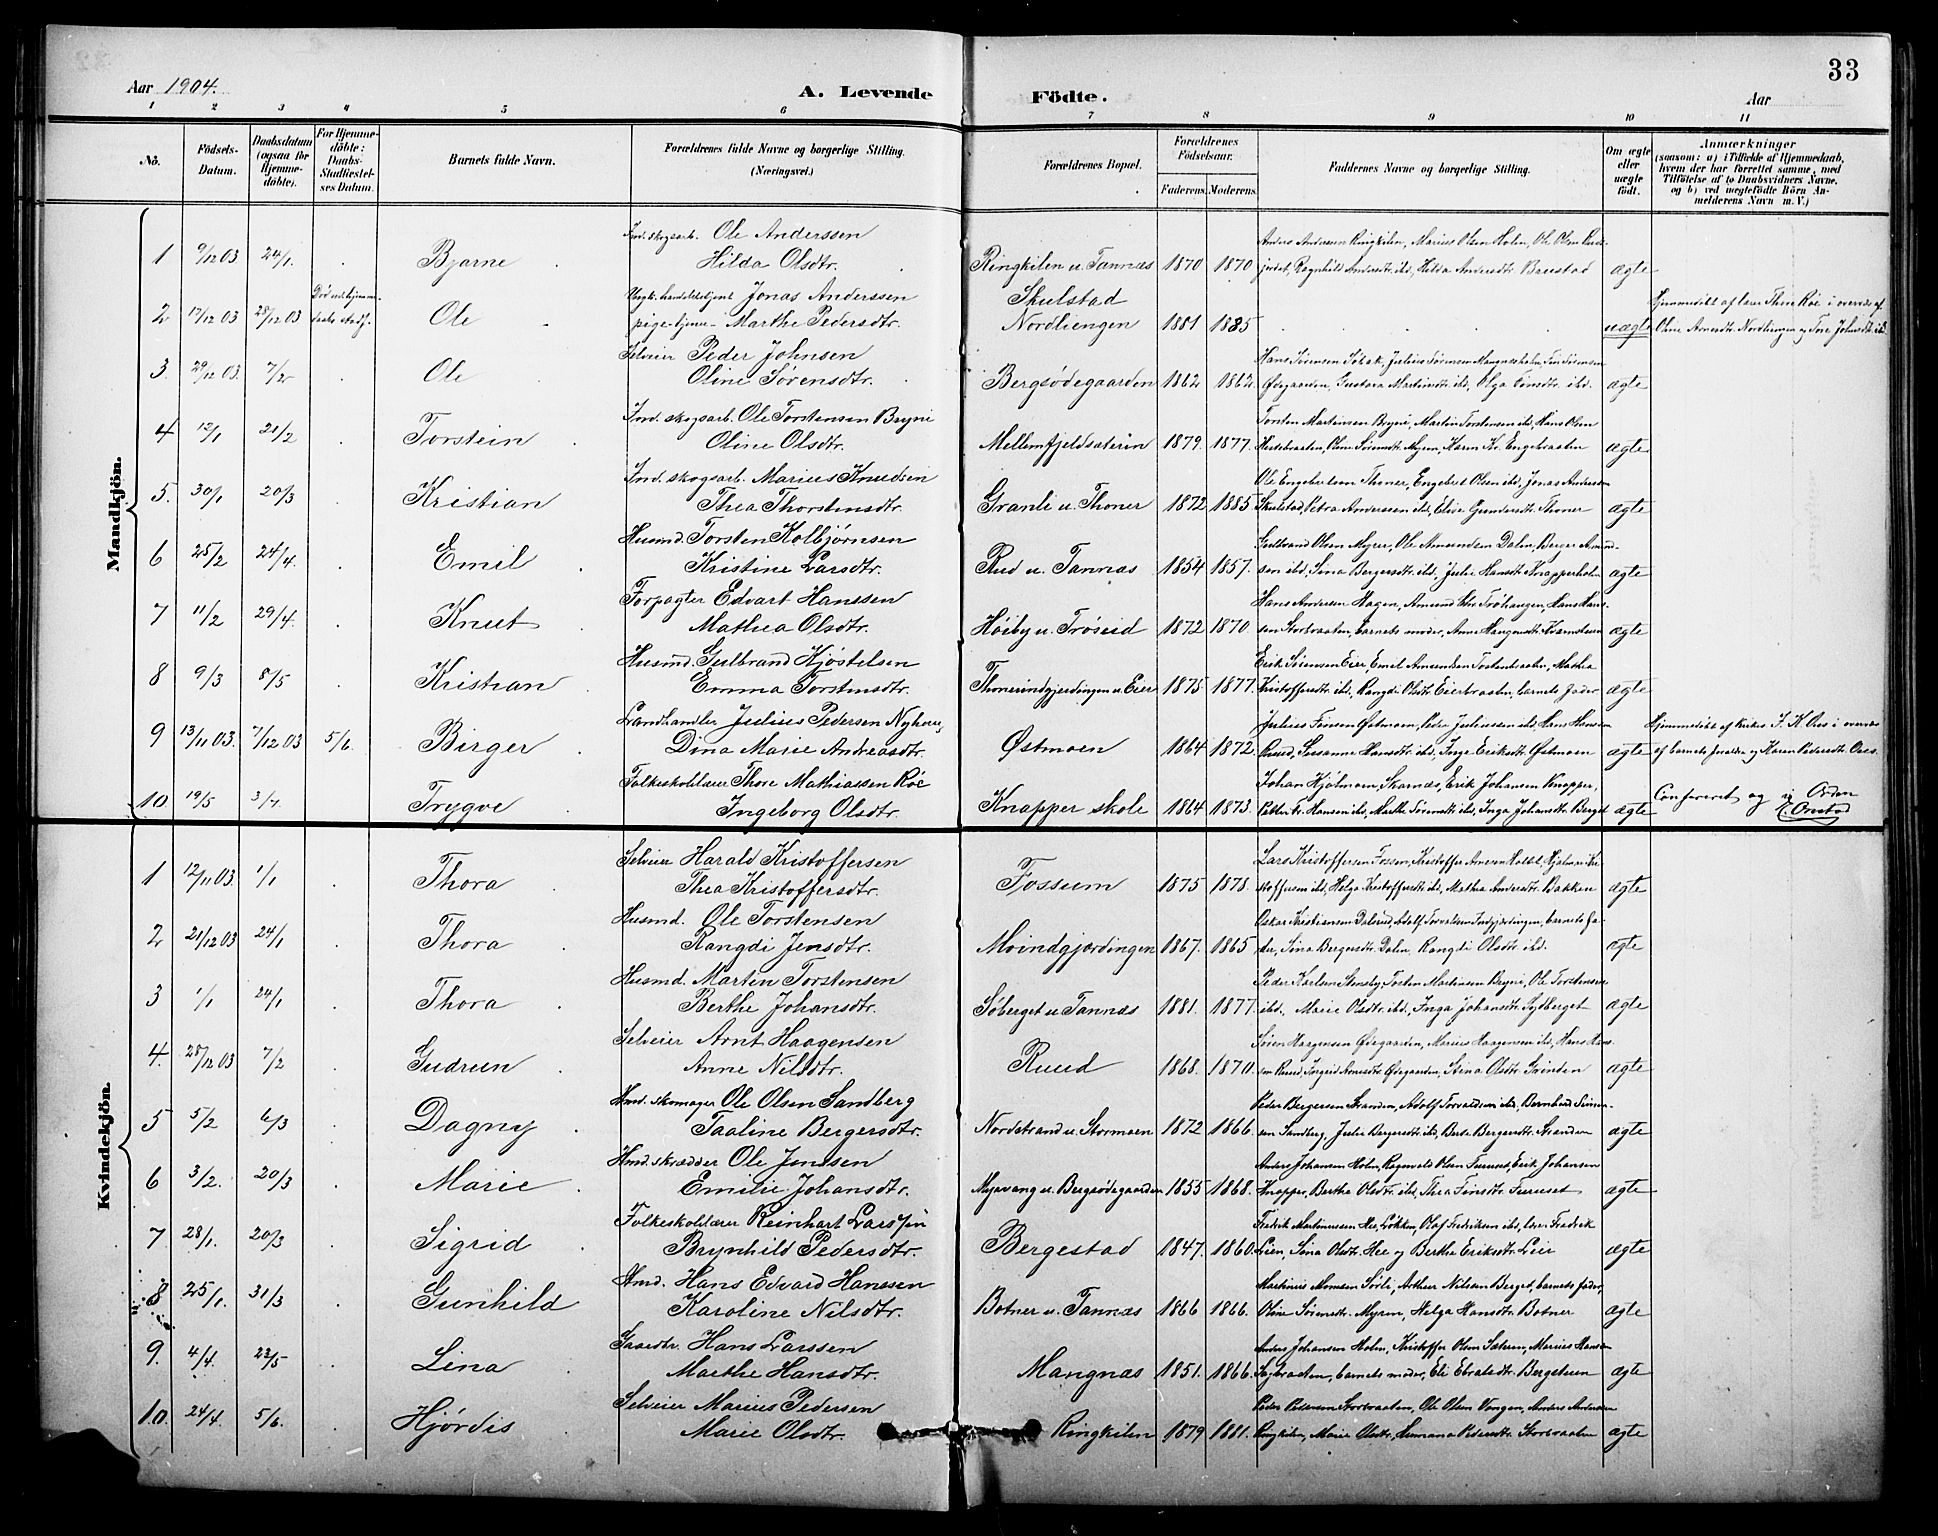 33
Aar 1904.
A. Levende Födte.
Aar
1 2 3 4 5 6 7 8 9 10 11
No.
Födsels-Datum.
Daabsdatum (ogsaa för Hjemme-döbte).
For Hjemme-döbte: Daabs-Stadfæstel-ses Datum.
Barnets fulde Navn.
Forældrenes fulde Navne og borgerlige Stilling. (Næringsvei.)
Forældrenes Bopæl.
Forældrenes Födselsaar.
Faderens. Moderens.
Faddernes Navne og borgerlige Stilling.
Om ægte eller uægte født.
Anmærkninger
(saasom: a) i Tilfælde af Hjemmedaab, hvem der har forrettet samme, med Tilföielse af to Daabsvidners Navne, og b) ved uægtefödte Börn An-melderens Navn m. V.)
Mandkjön.
1 9/12 03 24/1. Bjarne Ind. skogsarb. Ole Anderssen
Hilda Olsdtr. Ringkilen u. Tannæs 1870 1870 Anders Andersen Ringkilen, Marius Olsen Holen, Ole Olsen
Ragnhild Andersdtr. ibd, Hilda Andersdtr. Brustad ægte
2 17/12 03 28/12 03 Ole Ungk. handelsbetjent Jonas Anderssen
pige tjene Marthe Pedersdtr. Skulstad
Nordliengen 1881 1885 uægte Hjemmedøbt af lærer Thore Røe i overvær af
Oline Arnesdtr. Nordliengen og Tore Johnsdtr. ibd.
3. 29/12 03. 7/2 Ole Selveier Peder Johnsen
Oline Sørensdtr. Bergsødegaarden 1862 1862 Hans Sørensen Søbak, Julius Sørensen Mangnæsholm, Finn Sørensen
Ødegaarden, Gustava Martinsdtr. ibd, Olga Finsdtr. ibd. ægte
4 12/1 21/2 Torstein Ind. skogsarb. Ole Torstensen Bryni
Oline Olsdtr. Mellemfjeldsæterin 1879. 1877. Torsten Martinsen Bryni, Martin Torstensen ibd, Hans Olsen
Oline Sørensdtr. Myren, Karen Kr. Engebraaten ægte
5. 30/1 20/3 Kristian Ind. skogsarb. Marius Knudsen
Thea Thorstensdtr. Granli u. Thoner 1872 1885 Ole Engebretsen Thoner, Engebret Olsen ibd, Jonas Andersen
Skulstad, Petra Anderssen ibd, Eline Gundersdtr. Thoner ægte
6 25/2 24/4. Emil Husmd. Torsten Kolbjørnsen
Kristine Larsdtr. Rud u. Tannæs 1854 1857. Gulbrand Olsen Myrer, Ole Amundsen Dalen, Berger Amund-
sen ibd, Sina Bergersdtr. ibd, Julie Hansdtr. Knapperholen ægte
7 11/2 29/4. Knut Forpagter Edvart Hanssen
Mathea Olsdtr. Høiby u. Trøseid 1872 1870. Hans Andersen Hagen, Amund Chr. Trøhaugen, Hans Hans-
sen Storbraaten, barnets moder, Anne Haagensdtr. Kvernstuen ægte
8 9/3 8/5 Kristian Husmd. Gulbrand Kjøstelsen
Emma Torstensdtr. Thonerindgjerdingen u. Eier 1875 1877 Erik Sørensen Eier, Emil Amundsen Tostenbraaten, Mathea
Kristoffersdtr. ibd, Rangdi Olsdtr. Eierbraaten, barnets fader ægte
9 13/11 03. 7/12 03 5/6. Birger Landhandler Julius Pedersen Nyhuus,
Dina Marie Andreasdtr. Østmoen 1864 1872 Julius Østmoen, Peder Juliussen ibd, Hans Hansen
Ruud, Susanne Hansdtr. ibd, Inge Eriksdtr. Østmoen ægte Hjemmedøbt af Kirkes. J. K. Oxes i overvær
af barnets forældre og Karen Pedersdtr. Oxes.
10 19/5 3/7. Trygve Folkeskolelærer Thore Mathiassen Røe
Ingeborg Olsdtr. Knapper skole 1864 1873. Johan Hjelmoen, Skarnæs, Erik Johansen Knapper,
Petter Fr. Hansen ibd, Marthe Sørensdtr. ibd, Inga Johansdtr. Berget ægte Confereret og i Orden
E. Onstad
Kvindekjön.
1 12/11 03 1/1 Thora Selveier Harald Kristoffersen
Thea Kristoffersdtr. Fossum 1875 1878. Lars Kristoffersen Fossum, Kristoffer Amesen Holst, Hjalmar Kri-
stoffersen ibd, Helga Kristoffersdtr. ibd, Mathea Andersdtr. Bakken ægte
2 21/12 03 24/1 Thora Husmd. Ole Torstensen
Rangdi Jensdtr. Moindgjerdingen 1867. 1865 Oskar Kristiansen Dalerud, Adolf Torvaldsen Indgjerdingen, barnets fa-
der, Sina Bergersdtr. Dalen, Rangdi Olsdtr. ibd. ægte
3 1/1 24/1 Thora Husmd. Martin Torstensen
Berthe Johansdtr. Søberget u. Tannæs 1881. 1877. Peder Karlsen Gunsby, Torsten Martinsen Bryni, Ole Torstensen
ibd, Marie Olsdtr. ibd, Inga Johansdtr. Sydberget ægte
4. 28/12 03 7/2 Gudrun Selveier Arnt Haagensen
Anne Nilsdtr. Ruud 1868. 1870. Søren Haagensen Ødegaarden, Marius Haagensen ibd, Hans Hans-
sen Ruud, Ingrid Arnesdtr. Ødegaarden, Stina Olsdtr. Grinden ægte
5 5/2 6/3 Dagny Hmd. skomager Ole Olsen Sandberg
Taaline Bergersdtr. Nordstrand u. Stormoen 1872 1866. Peder Bergersen Stranden, Adolf Torvaldsen ibd, Bernhard Simen-
sen Sandberg, Julie Bergersdtr. ibd, Berte Bergersdtr. Stranden ægte
6 3/2. 20/3 Marie Hmd. skrædder Ole Jensen
Emilie Johansdtr. Myrvang u. Bergsødegaarden 1855 1868. Anders Johansen Holm, Ragnvald Olsen Furuset, Erik Johansen
Knapper, Berthe Olsdtr. ibd, Thea Finsdtr. Furuset ægte
7 28/1. 20/3 Sigrid Folkeskolelærer Reinhart Larssen
Brynhild Pedersdtr. Bergestad 1847. 1860. Fredrik Martinusen Hee, Løkken, Olaf Fredriksen ibd, lærer Fredrik
Lien, Sina Olsdtr. Hee og Berthe Eriksdtr. Leir ægte
8 25/1. 31/3 Gunhild Hmd. Hans Edvard Hanssen
Karoline Nilsdtr. Botner u. Tannæs 1866 1866. Martinius Monsen Sørli, Arthur Nilsen Berget, barnets fader,
Oline Sørensdtr. Myren, Helga Hansdtr. Botner ægte
9. 4/4. 22/5 Lina Gaardbr. Hans Larssen
Marthe Hansdtr. Mangnæs 1851. 1866. Anders Johansen Holm, Kristoffer Olsen Sæteren, Marius Hansen
barnets moder, Eli Ebralsdtr. Bergestuen ægte
10. 24/4. 5/6. Hjørdis Selveier Marius Pedersen
Marie Olsdtr. Ringkilen 1879 1881. Peder Pedersen Storbraaten, Ole Olsen Vangen, Anders Andersen
Ringkilen, Marie Olsdtr., Hermana Pedersdtr. Storbraaten ægte